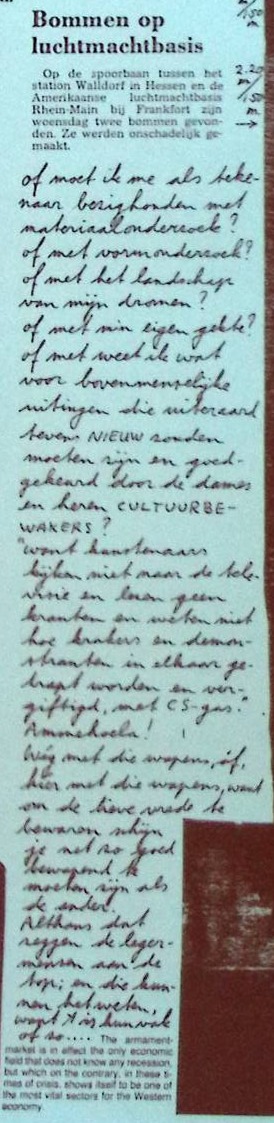 Bommen op
luchtmachtbasis
Op de spoorbaan tussen het
station Walldorf in Hessen en de
Amerikaanse luchtmachtbasis
Rhein-Main bij Frankfort zijn
woensdag twee bommen gevon-
den. Ze werden onschadelijk ge-
maakt.
/150
m
2.20
m/
/150
m
→
of moet ik me als teke-
naar bezighouden met
materiaalonderzoek?
of met vormonderzoek?
of met het landschap
van mijn dromen?
of met mijn eigen gekte?
of met weet ik wat
voor bovenmenselijke
uitingen die uiteraard
tevens NIEUW zouden
moeten zijn en goed-
gekeurd door de dames
en heren CULTUURBE-
WAKERS?
"want kunstenaars
kijken niet naar de tele-
visie en lezen geen
kranten en weten niet
hoe krakers en demon-
stranten in elkaar ge-
trapt worden en ver-
giftigd, met CS-gas."
Ammehoela!
Wég met die wapens, óf,
hier met die wapens, want
om de lieve vrede te
bewaren schijn
je net zo goed
bewapend te
moeten zijn als
de ander.
Althans dat
zeggen de leger-
mensen aan de
top; en die kun-
nen het weten,
want 't is hun vak
of zo.... The armament-
market is in effect the only economic
field that does not know any recession,
but which on the contrary, in these ti-
mes of crisis, shows itself to be one of
the most vital sectors for the Western
economy.